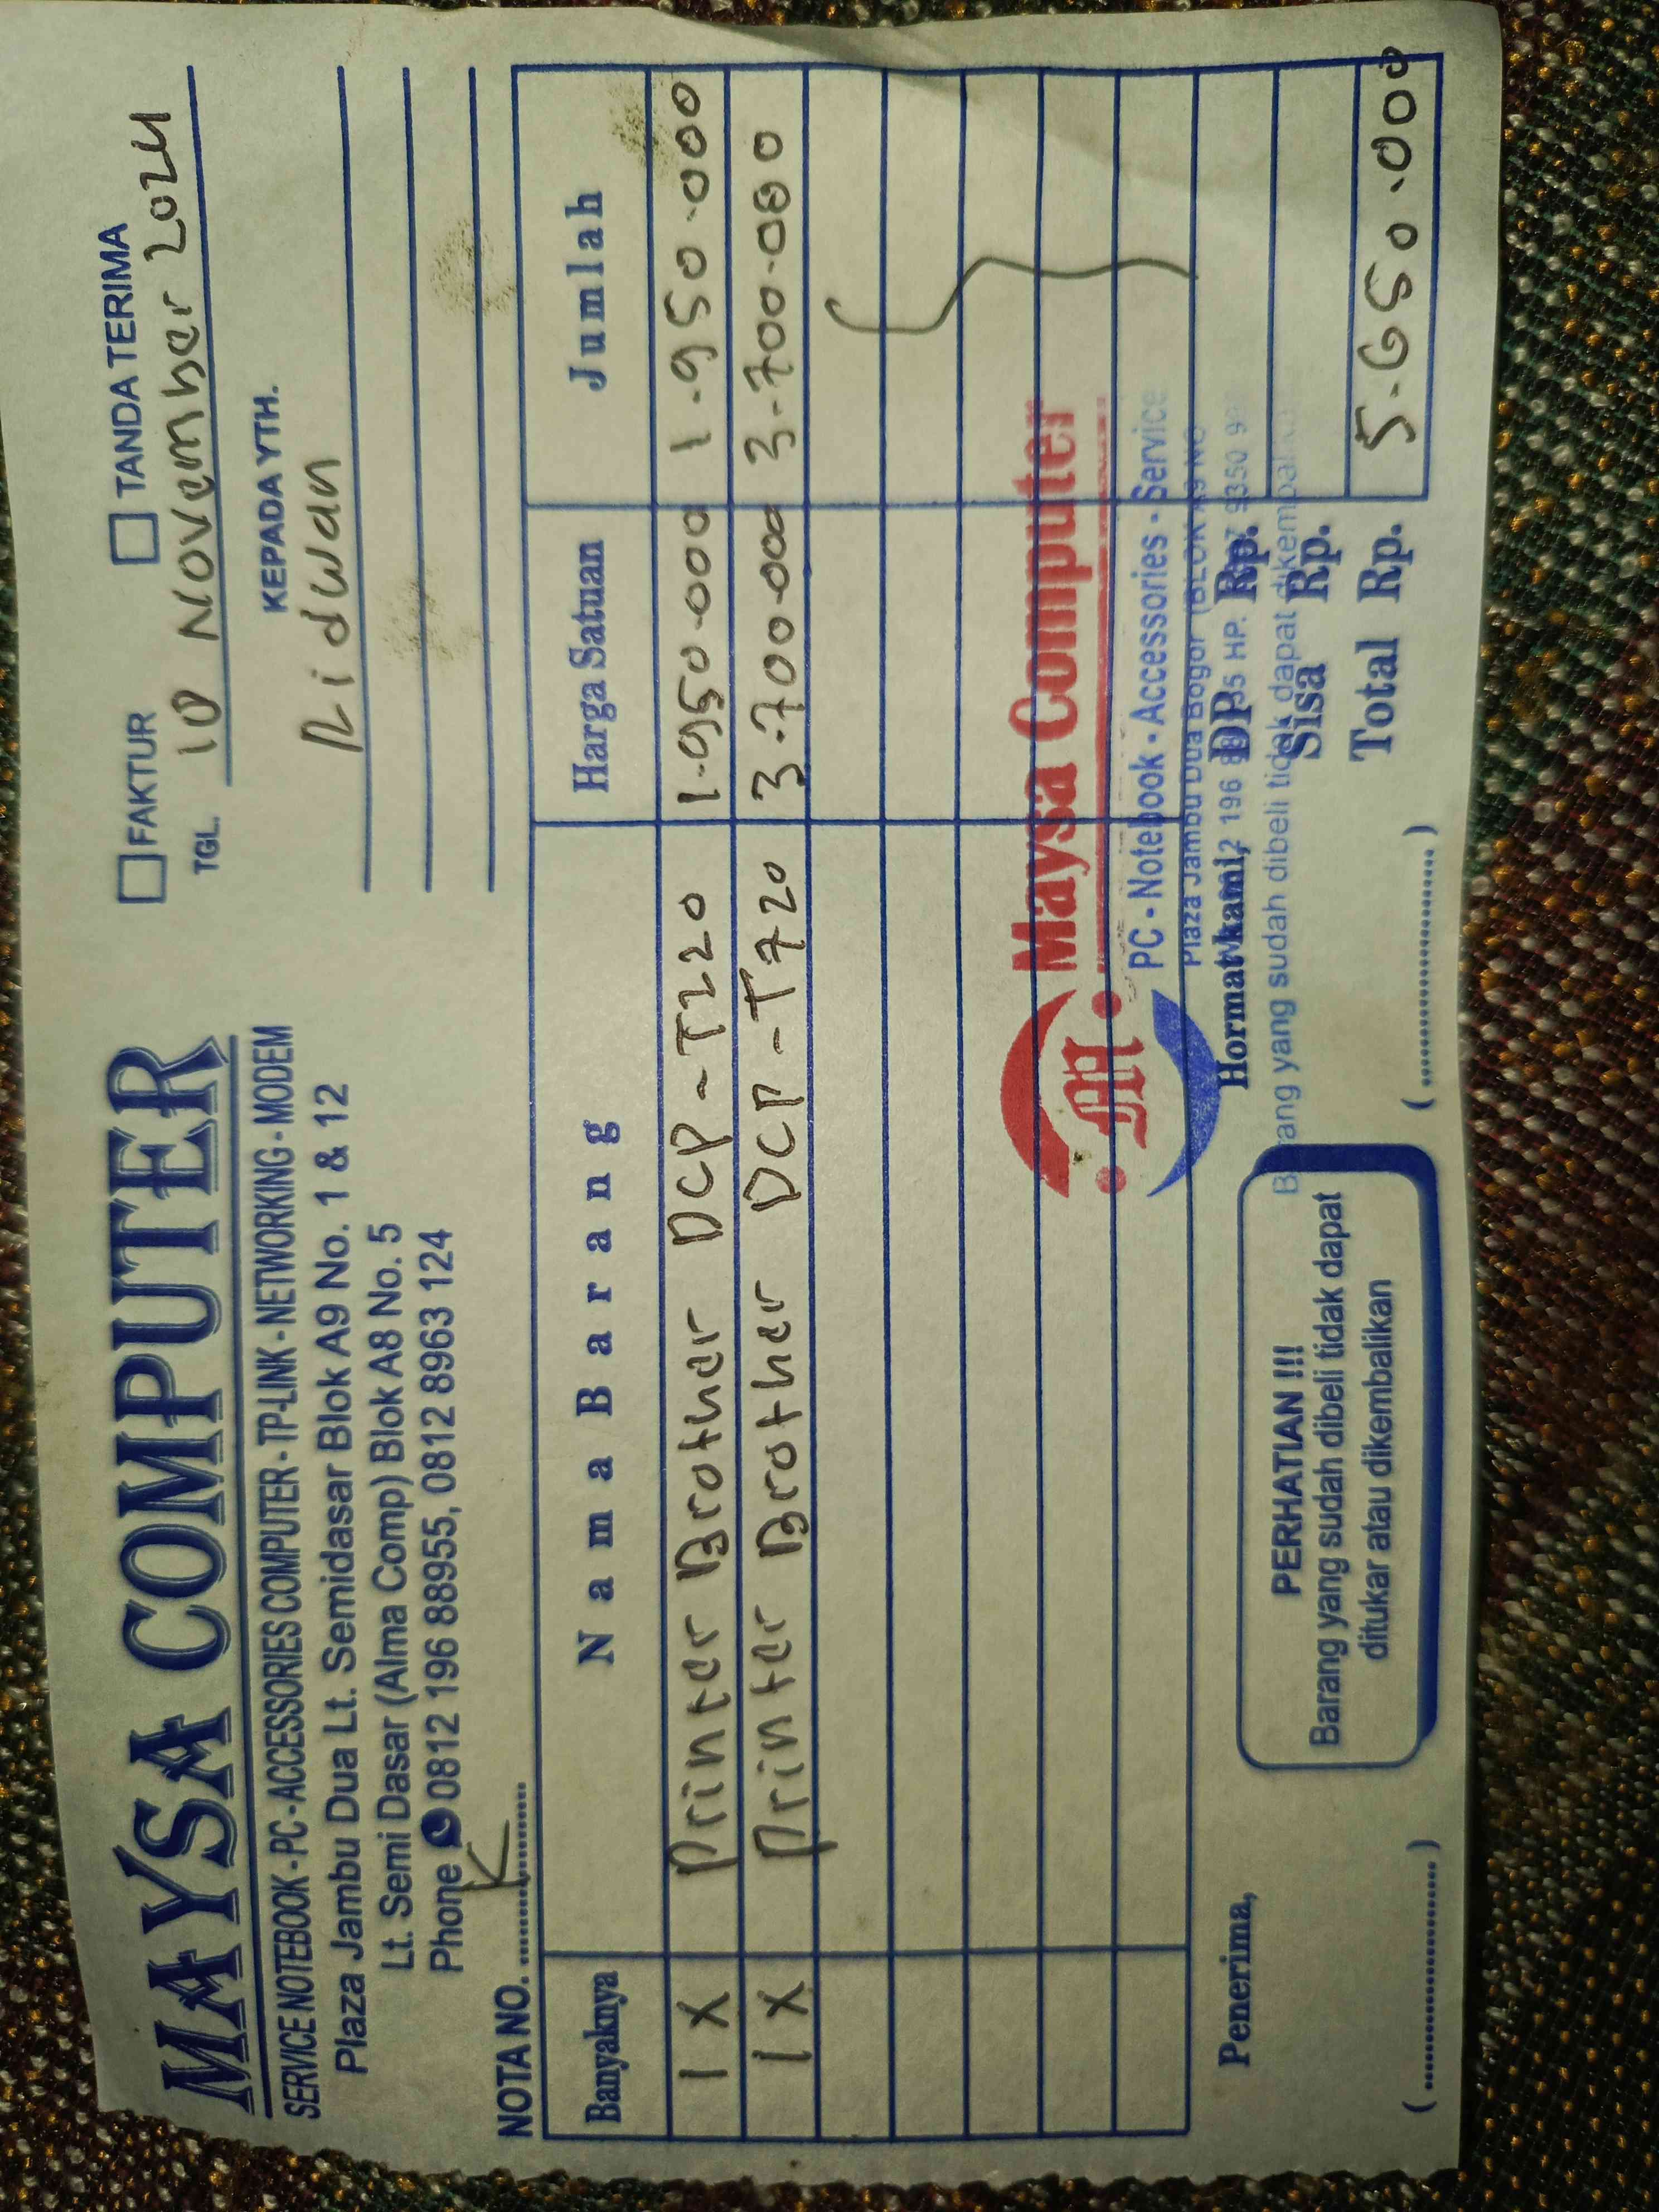 MAYSA COMPUTER
SERVICE NOTEBOOK - PC - ACCESSORIES COMPUTER - TP-LINK - NETWORKING - MODEM
Plaza Jambu Dua Lt. Semidasar Blok A9 No. 1 & 12
Lt. Semi Dasar (Alma Comp) Blok A8 No. 5
Phone 0812 196 88955, 0812 8963 124
NOTA NO. ....................
FAKTUR TANDA TERIMA
TGL. 10 November 2024
KEPADA YTH.
Ridwan
Banyaknya Nama Barang Harga Satuan Jumlah
1 X Printer Brother DCP-T220 1.950.000 1.950.000
1 X Printer Brother DCP-T720 3.700.000 3.700.000
Maysa Computer
M
PC - Notebook - Accessories - Service
Plaza Jambu Dua Bogor (BLOK A9 NO
196 HP. 9350
Barang yang sudah dibeli tidak dapat dikembalikan
Penerima,
Hormat kami,
DP Rp.
Sisa Rp.
Total Rp. 5.650.000
PERHATIAN !!!
Barang yang sudah dibeli tidak dapat
ditukar atau dikembalikan
(....................) (....................)